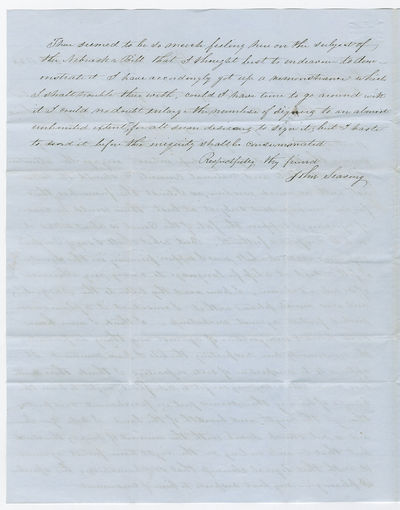 There seemed to be so much feeling here on the subject of
the Nebraska Bill that I thought best to endeavor to dem-
onstrate it I have accordingly got up a remonstrance which
I shall trouble thee with, could I have time to go around with
it I could no doubt enlarge the number of signing to an almost
unlimited extent, for all seem desiring to sign it, but I haste
to send it before the iniquity shall be consummated
Respectfully thy friend
John Searing